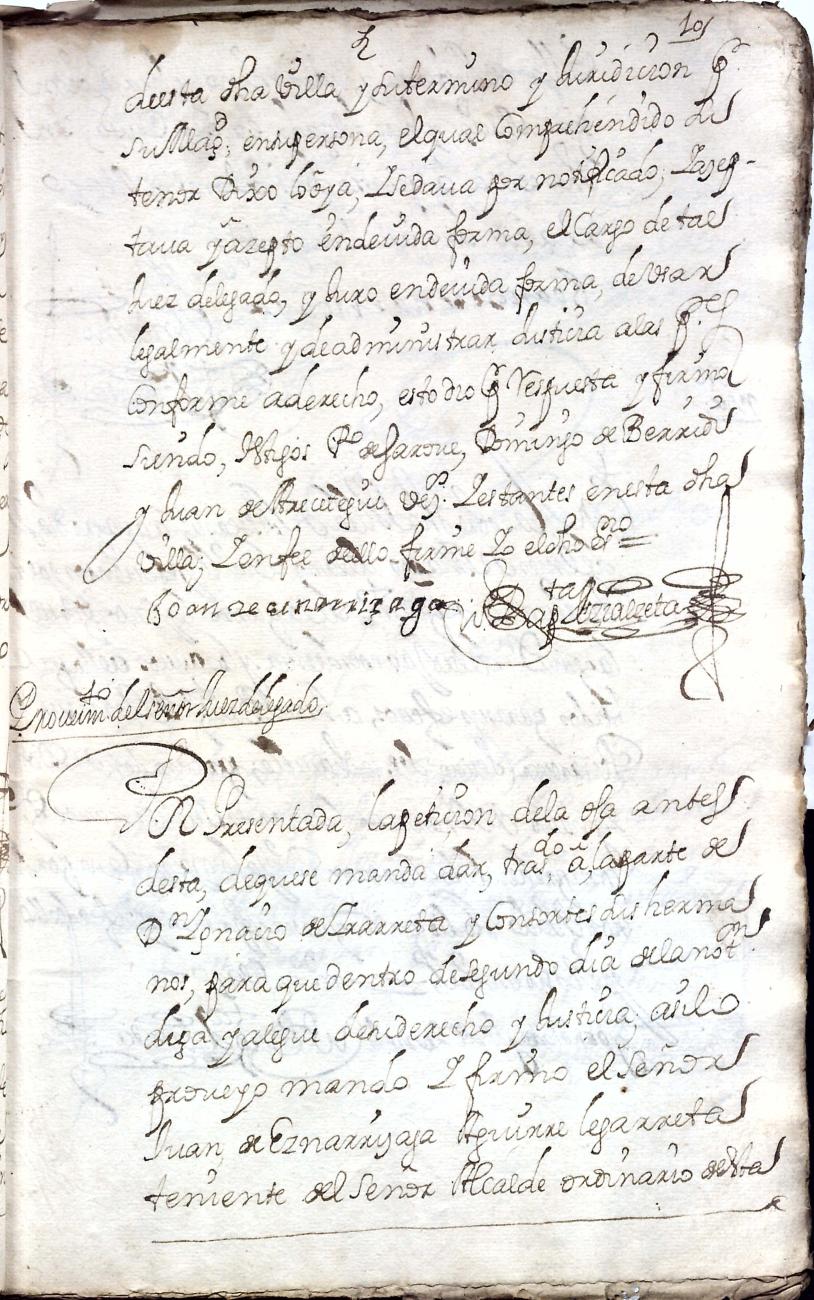 10
deesta dha Villa y su termino y Juridicion p.r
su Mag.d; en su persona, el qual Comprehendido su
tenor Dixo lo oya, y se dava por notificado; y azep-
tava y azepto en devida forma, el Cargo de tal
Juez delegado, y Juro en devida forma, de Usar
legalmente y de administrar Justicia a las p.tes
Conforme a derecho, esto dio p.r Respuesta y firmo
siendo, testigos P.o de Garove, Domingo de Berridi
y Juan de Arreitegui Vez.os y estantes en esta dha
Villa; y en fee dello firme yo el dho es.no =
Joan de eznarriçaga
Bap.ta
Proveim.to del señor Juez delegado
En Presentada, la peticion de la oja antes
desta, de que se manda dar, tras.do a, la parte de
D.n Ignacio de Irarreta y Consortes sus herma
nos, para que dentro de segundo dia de la not.on
diga y alegue de su derecho y Justicia; asi lo
proveyo mando y firmo el Señor
Juan de Eznarriçaga Aguirre legarreta
teniente del Señor Alcalde ordinario de esta